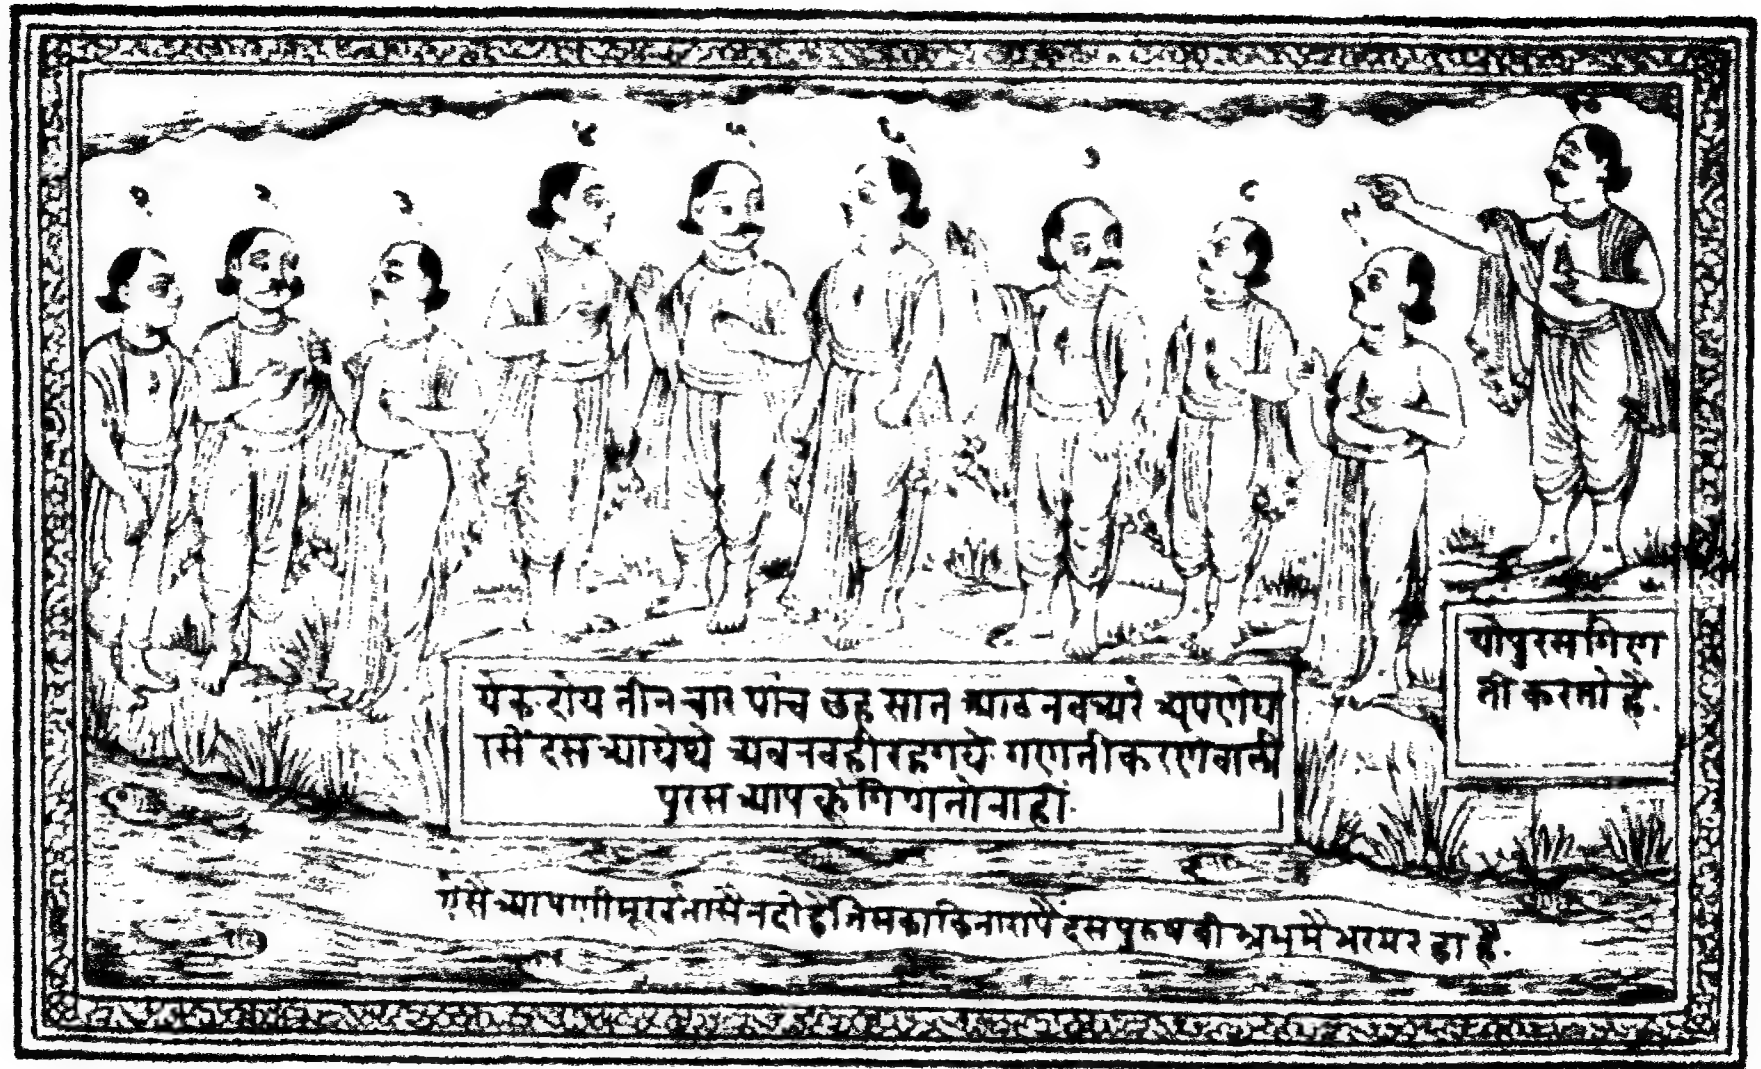 १ २ ३ ४ ५ ६ ७ ८ ९ १०
येक दोय तीन चार पांच छह सात आठ नव अरे अपणेघ
रासें दस आयेथे अब नवही रहगये गणती करणेवाली
पुरस आपकू गिणतो नाही
यो पुरस गिण
ती करतो है.
नदी है
दस पुरुष बी भ्रम मै भरम रहा है.